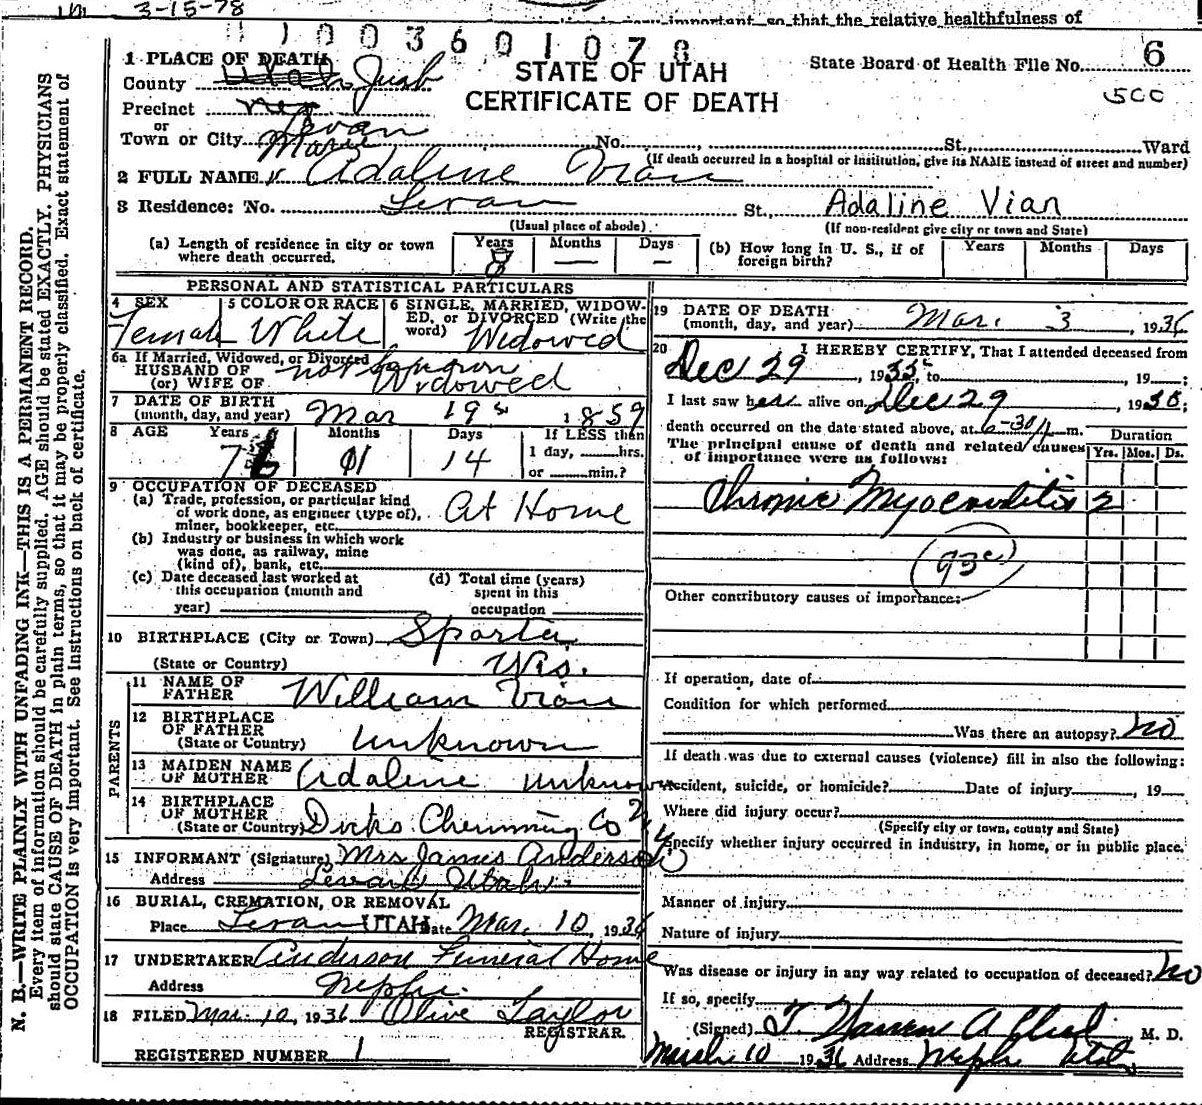 3-15-78
important so that the relative healthfulness of
1 1 0 0 3 6 0 1 0 7 8
6
1 PLACE OF DEATH
STATE OF UTAH
CERTIFICATE OF DEATH
State Board of Health File No.
500
County Utah Juab
Precinct
or
Town or City Levan No. St., Ward
(If death occurred in a hospital or institution, give its NAME instead of street and number)
2 FULL NAME Marie Adaline Vian
3 Residence: No. Levan St., Adaline Vian
(Usual place of abode) (If non-resident give city or town and State)
(a) Length of residence in city or town where death occurred. Years 8 Months — Days —
(b) How long in U. S., if of foreign birth? Years Months Days
PERSONAL AND STATISTICAL PARTICULARS
4 SEX Female
5 COLOR OR RACE White
6 SINGLE, MARRIED, WIDOWED, or DIVORCED (Write the word) Widowed
6a If Married, Widowed, or Divorced
HUSBAND OF
(or) WIFE OF Widowed
7 DATE OF BIRTH
(month, day, and year) Mar 19 1859
8 AGE Years 76 Months 11 Days 14 If LESS than
1 day, hrs.
or min.?
9 OCCUPATION OF DECEASED
(a) Trade, profession, or particular kind
of work done, as engineer (type of),
miner, bookkeeper, etc. At Home
(b) Industry or business in which work
was done, as railway, mine
(kind of), bank, etc.
(c) Date deceased last worked at
this occupation (month and
year)
(d) Total time (years)
spent in this
occupation
10 BIRTHPLACE (City or Town) Sparta
(State or Country) Wis.
PARENTS
11 NAME OF FATHER William Vian
12 BIRTHPLACE OF FATHER
(State or Country) Unknown
13 MAIDEN NAME OF MOTHER Adaline Unknown
14 BIRTHPLACE OF MOTHER
(State or Country) Chemung Co N.Y.
15 INFORMANT (Signature) Mrs James Anderson
Address Levan Utah
16 BURIAL, CREMATION, OR REMOVAL
Place Levan UTAH Date Mar. 10, 1936
17 UNDERTAKER Anderson Funeral Home
Address Nephi
18 FILED Mar. 10, 1936 Olive Taylor
REGISTRAR.
REGISTERED NUMBER 1
19 DATE OF DEATH
(month, day, and year) Mar. 3, 1936
20 I HEREBY CERTIFY, That I attended deceased from
Dec 29, 1935, to , 19 ;
I last saw her alive on Dec 29, 1935;
death occurred on the date stated above, at 6-30 m.
The principal cause of death and related causes
of importance were as follows:
Duration
Yrs. Mos. Ds.
Chronic Myocarditis 2
93c
Other contributory causes of importance:
If operation, date of
Condition for which performed
Was there an autopsy? No
If death was due to external causes (violence) fill in also the following:
Accident, suicide, or homicide? Date of injury , 19
Where did injury occur?
(Specify city or town, county and State)
Specify whether injury occurred in industry, in home, or in public place.
Manner of injury
Nature of injury
Was disease or injury in any way related to occupation of deceased? No
If so, specify
(Signed) M. D.
March 10 1936 Address Nephi Utah
N. B.—WRITE PLAINLY WITH UNFADING INK—THIS IS A PERMANENT RECORD.
Every item of information should be carefully supplied. AGE should be stated EXACTLY. PHYSICIANS
should state CAUSE OF DEATH in plain terms, so that it may be properly classified. Exact statement of
OCCUPATION is very important. See Instructions on back of certificate.